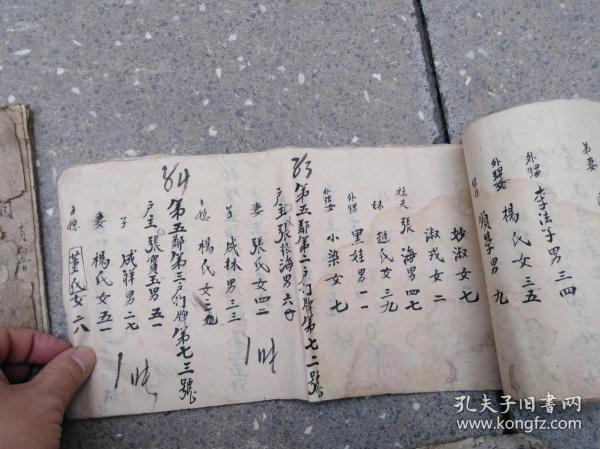 弟妻
外甥 李法子 男 三四
外甥女 楊氏 女 三五
順學 男 九
妙淑 女 七
淑戎 女 二
張海 男 四七
妹 趙氏 女 三九
外甥 黑娃 男 一一
小梁 女 七
83 第五鄰第二戶门牌第七二號
戶主 張 海 男 六
妻 張氏 女 四二
子 成林 男 三三
子媳 楊氏 女 三九
84 第五鄰第三戶门牌第七三號
戶主 張寶玉 男 五一
子 成祥 男 二七
妻 楊氏 女 五一
子媳 董氏 女 二八
孔夫子旧书网
www.kongfz.com